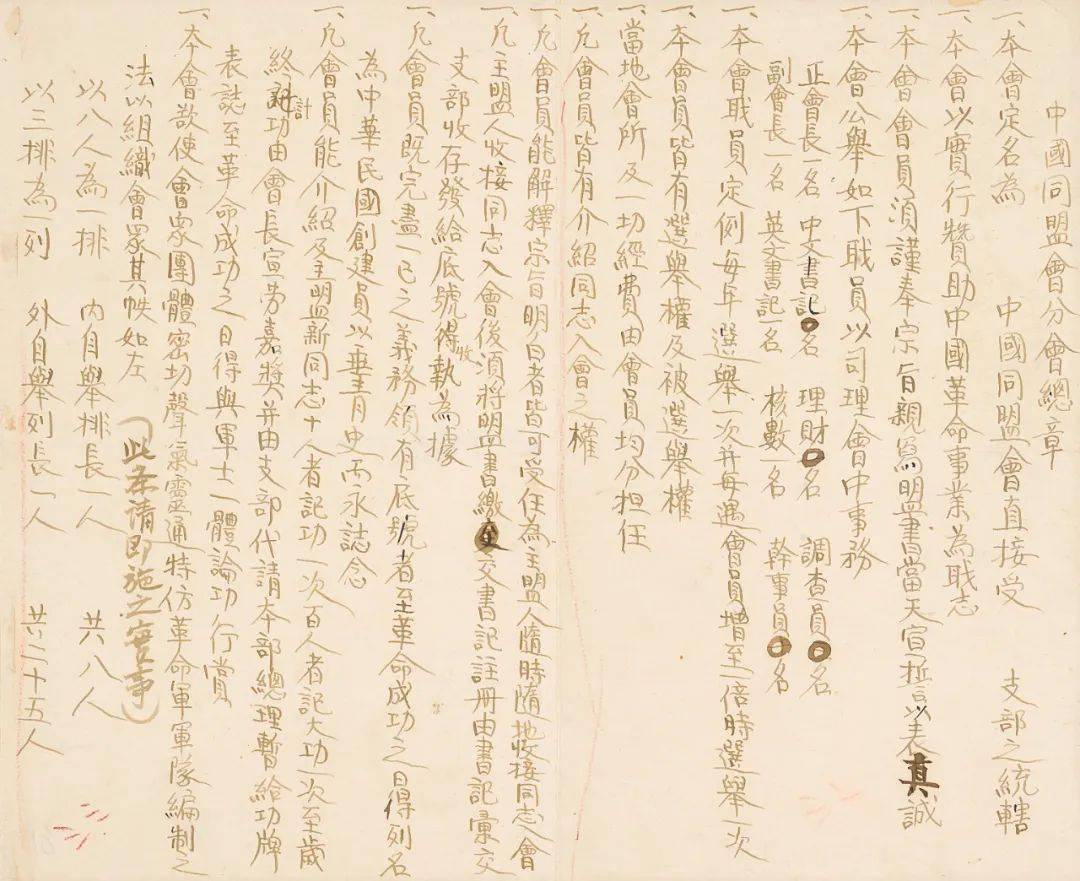 中國同盟會分會總章
一、本會定名為　　中國同盟會直接受　　支部之統轄
一、本會以實行贊助中國革命事業為職志
一、本會會員須謹奉宗旨親寫明書當天宣誓以表真誠
一、本會公舉如下職員以司理會中事務
正會長一名　中文書記〇名　理財〇名　調查員〇名
副會長一名　英文書記一名　核數一名　幹事員〇名
一、本會職員定例每年選舉一次并每遇會員增至一倍時選舉一次
一、本會員皆有選舉權及被選舉權
一、當地會所及一切經費由會員均分担任
一、凡會員皆有介紹同志入會之權
一、凡會員能解釋宗旨明白者皆可受任為主盟人隨時隨地收接同志入會
一、凡主盟人收接同志入會後須將盟書繳交書記註冊由書記彙交
支部收存發給底號得收執為據
一、凡會員既完盡一己之義務領有底號者至革命成功之日得列名
為中華民國創建員以垂青史而永誌念
一、凡會員能介紹及主盟新同志十人者記功一次百人者記大功一次至歲
終計功由會長宣勞嘉獎并由支部代請本部總理暫給功牌
表誌至革命成功之日得與軍士一體論功行賞
一、本會欲使會眾團體密切聲氣靈通特仿革命軍軍隊編制之
法以組織會眾其帙如左　(此条請即施之實事)
以八人為一排　內自舉排長一人　共八人
以三排為一列　外自舉列長一人　共二十五人